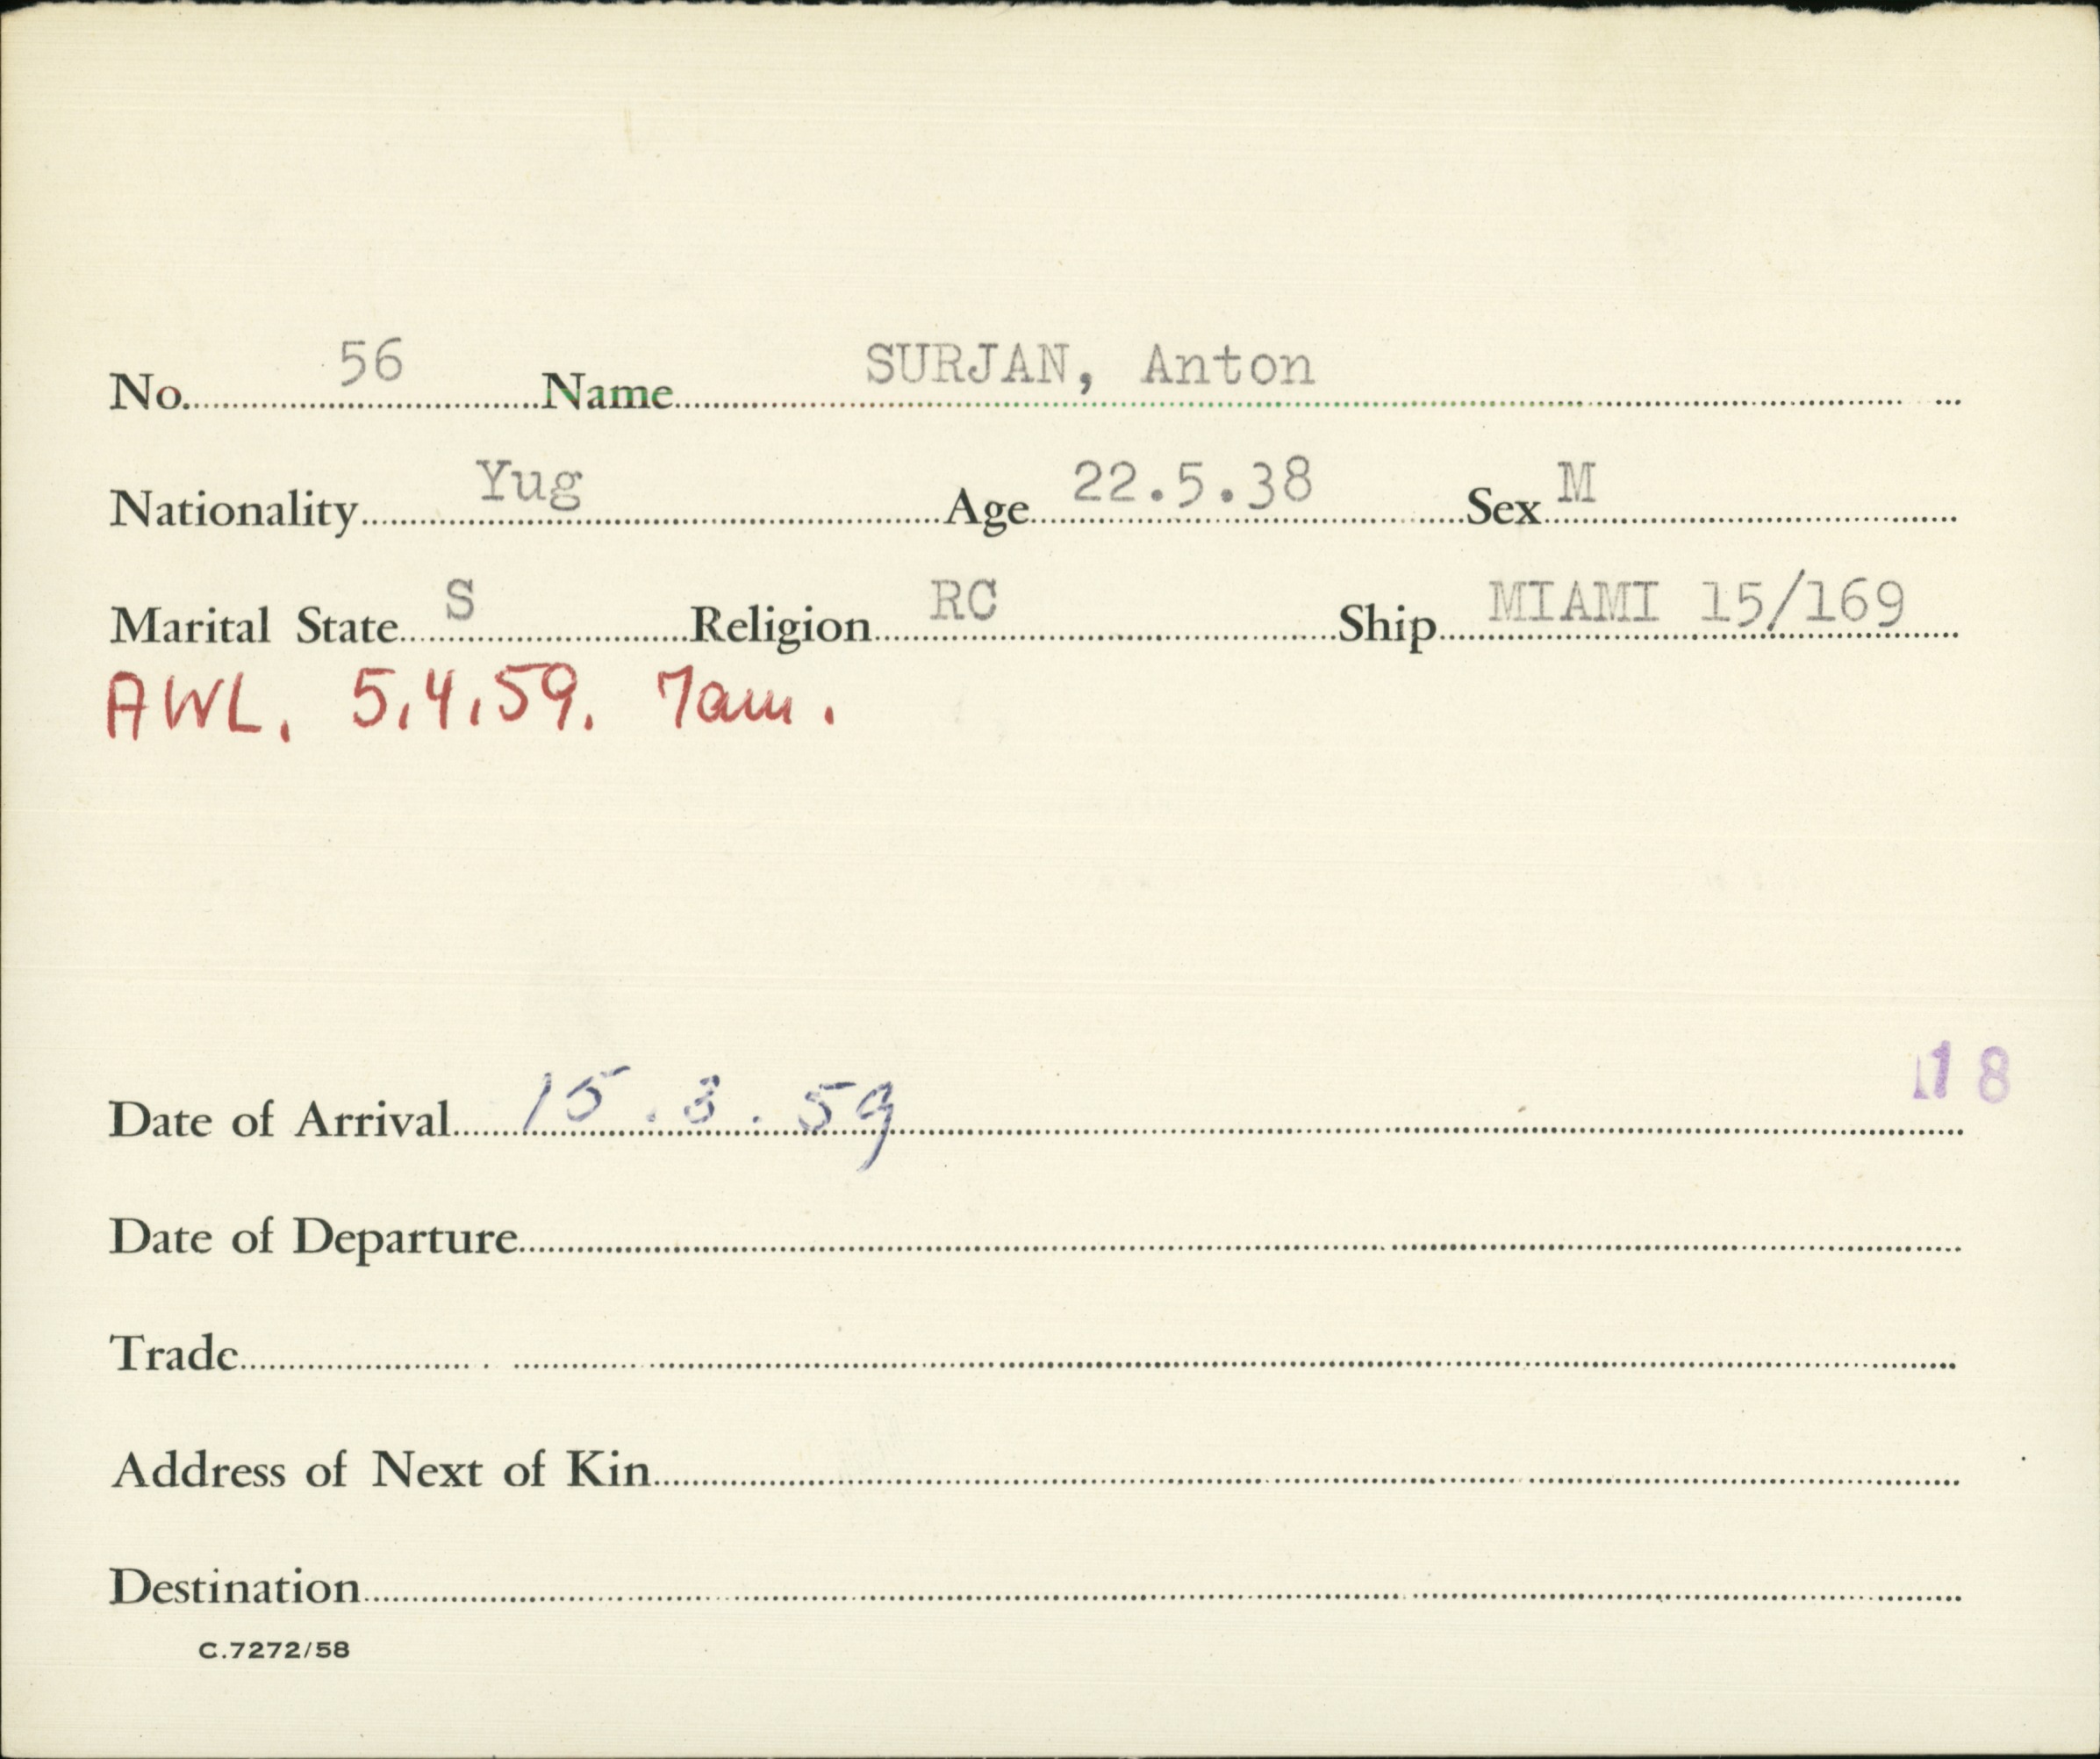 No. 56 Name SURJAN, Anton
Nationality Yug Age 22.5.38 Sex M
Marital State S Religion RC Ship MIAMI 15/169
AWL. 5.4.59. 7am.
118
Date of Arrival 15.3.59
Date of Departure
Trade
Address of Next of Kin
Destination
C.7272/58